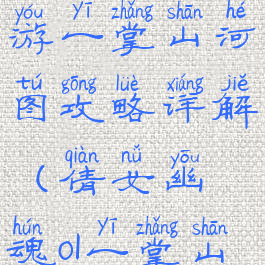 yóu yī zhǎng shān hé
游一掌山河
tú gōng lüè xiáng jiě
图攻略详解
qiàn nǚ yōu
(倩女幽
hún yī zhǎng shān
魂01一掌山